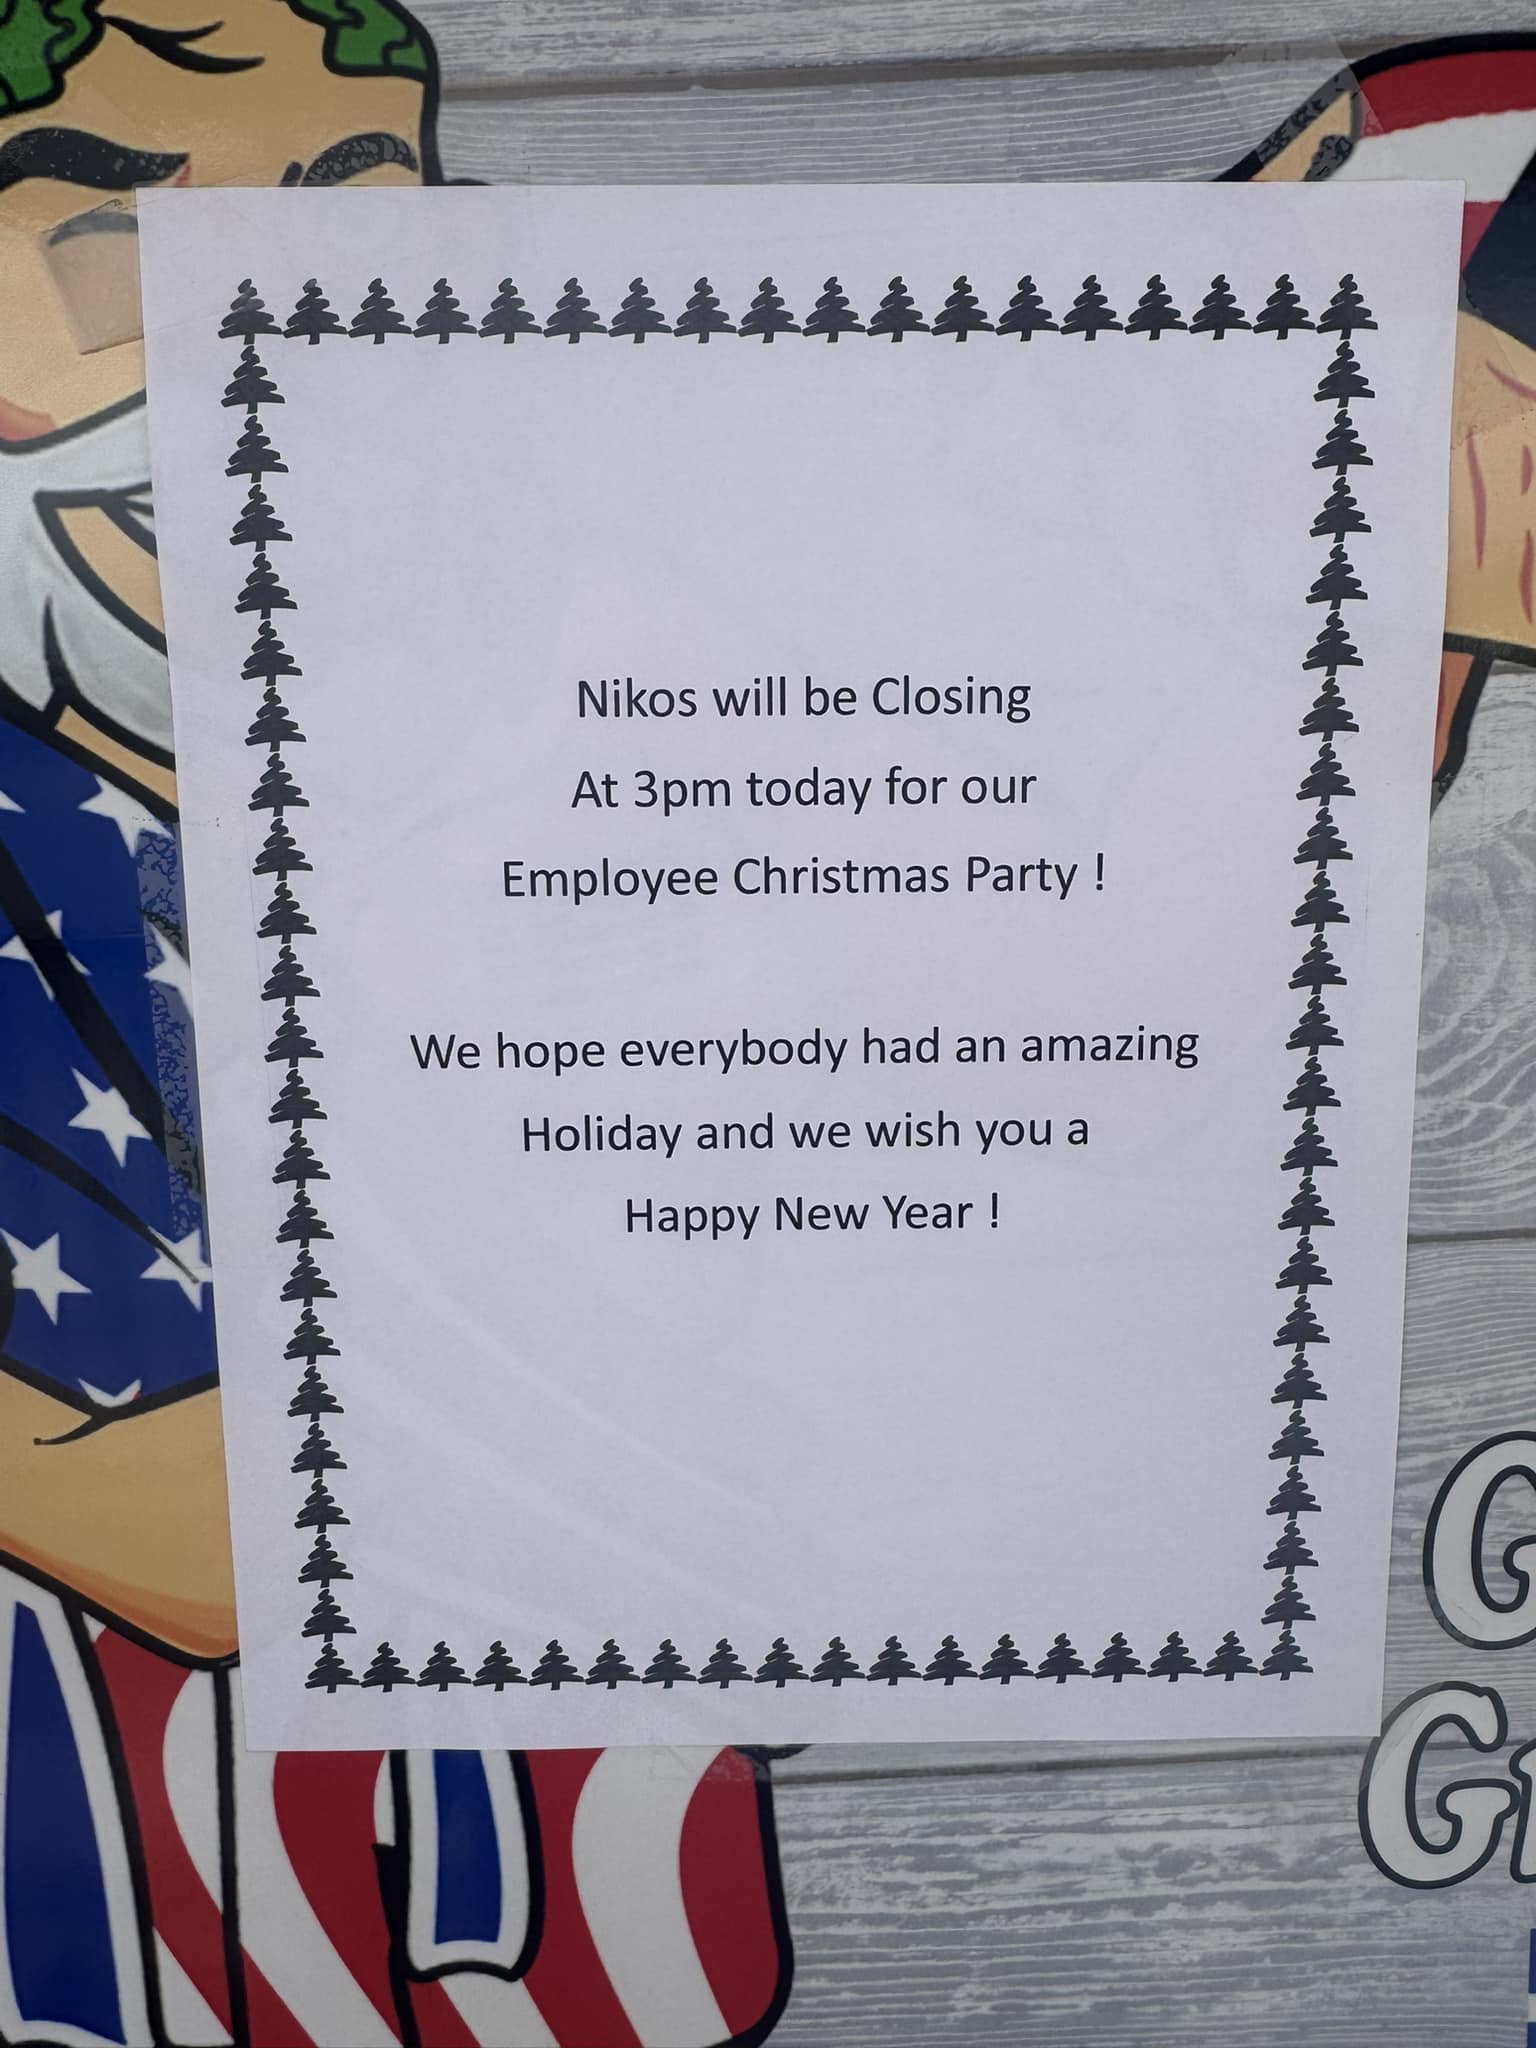 Nikos will be Closing
At 3pm today for our
Employee Christmas Party !
We hope everybody had an amazing
Holiday and we wish you a
Happy New Year !